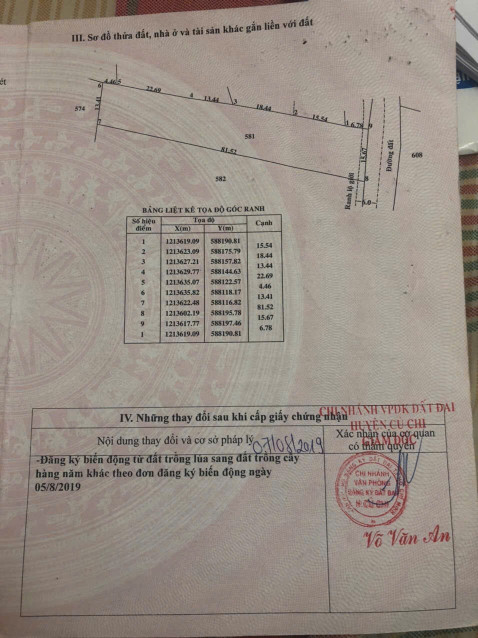 III. Sơ đồ thửa đất, nhà ở và tài sản khác gắn liền với đất
ét
6 4.46 5 22.69 4 13.44 3 18.44 2 15.54 1 6.78 9
574 13.41
7
581
81.52
582
15.67
8
Ranh lộ giới
Đường đất
608
BẢNG LIỆT KÊ TỌA ĐỘ GÓC RANH
Số hiệu điểm Tọa độ Cạnh
X(m) Y(m)
1 1213619.09 588190.81
15.54
2 1213623.09 588175.79
18.44
3 1213627.21 588157.82
13.44
4 1213629.77 588144.63
22.69
5 1213635.07 588122.57
4.46
6 1213635.82 588118.17
13.41
7 1213622.48 588116.82
81.52
8 1213602.19 588195.78
15.67
9 1213617.77 588197.46
6.78
1 1213619.09 588190.81
IV. Những thay đổi sau khi cấp giấy chứng nhận
CHI NHÁNH VPĐK ĐẤT ĐAI
HUYỆN CỦ CHI
Nội dung thay đổi và cơ sở pháp lý
07/08/2019
Xác nhận của cơ quan
có thẩm quyền
GIÁM ĐỐC
-Đăng ký biến động từ đất trồng lúa sang đất trồng cây
hàng năm khác theo đơn đăng ký biến động ngày
05/8/2019
CHI NHÁNH
VĂN PHÒNG
ĐĂNG KÝ ĐẤT ĐAI
H. CỦ CHI
Võ Văn An